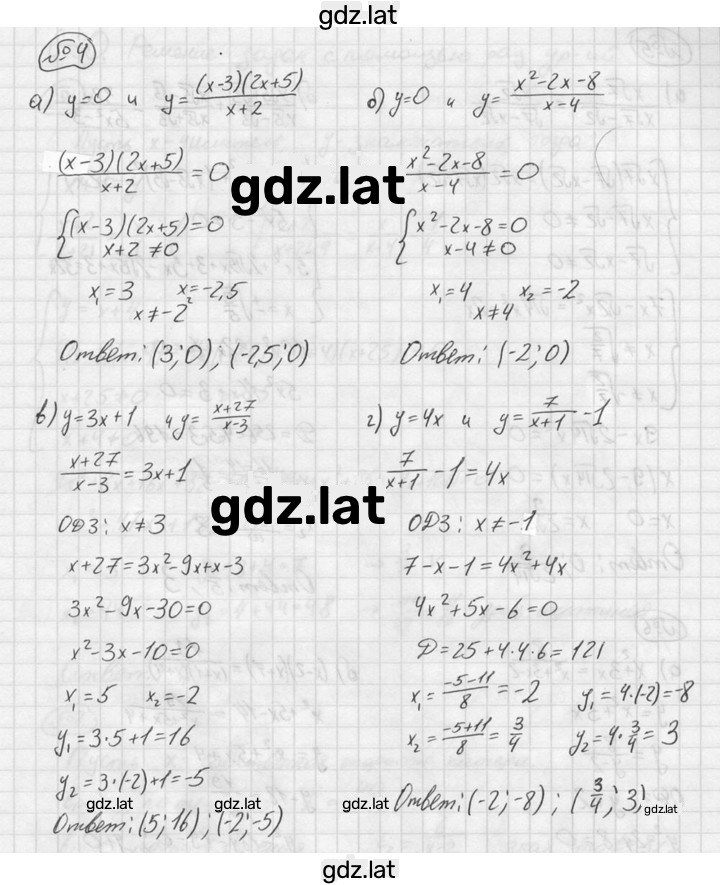 gdz.lat
№4
а) y=0 и y=(x-3)(2x+5)/x+2
(x-3)(2x+5)/x+2=0
{(x-3)(2x+5)=0
x+2≠0
x₁=3 x₂=-2,5
x≠-2
Ответ: (3;0); (-2,5;0)
б) y=0 и y=x²-2x-8/x-4
x²-2x-8/x-4=0
{x²-2x-8=0
x-4≠0
x₁=4 x₂=-2
x≠4
Ответ: (-2;0)
gdz.lat
в) y=3x+1 и y=x+27/x-3
x+27/x-3=3x+1
ОДЗ: x≠3
x+27=3x²-9x+x-3
3x²-9x-30=0
x²-3x-10=0
x₁=5 x₂=-2
y₁=3·5+1=16
y₂=3·(-2)+1=-5
Ответ: (5;16); (-2;-5)
г) y=4x и y=7/x+1-1
7/x+1-1=4x
ОДЗ: x≠-1
7-x-1=4x²+4x
4x²+5x-6=0
Д=25+4·4·6=121
x₁=-5-11/8=-2 y₁=4·(-2)=-8
x₂=-5+11/8=3/4 y₂=4·3/4=3
Ответ: (-2;-8); (3/4;3)
gdz.lat
gdz.lat
gdz.lat
gdz.lat
gdz.lat
gdz.lat